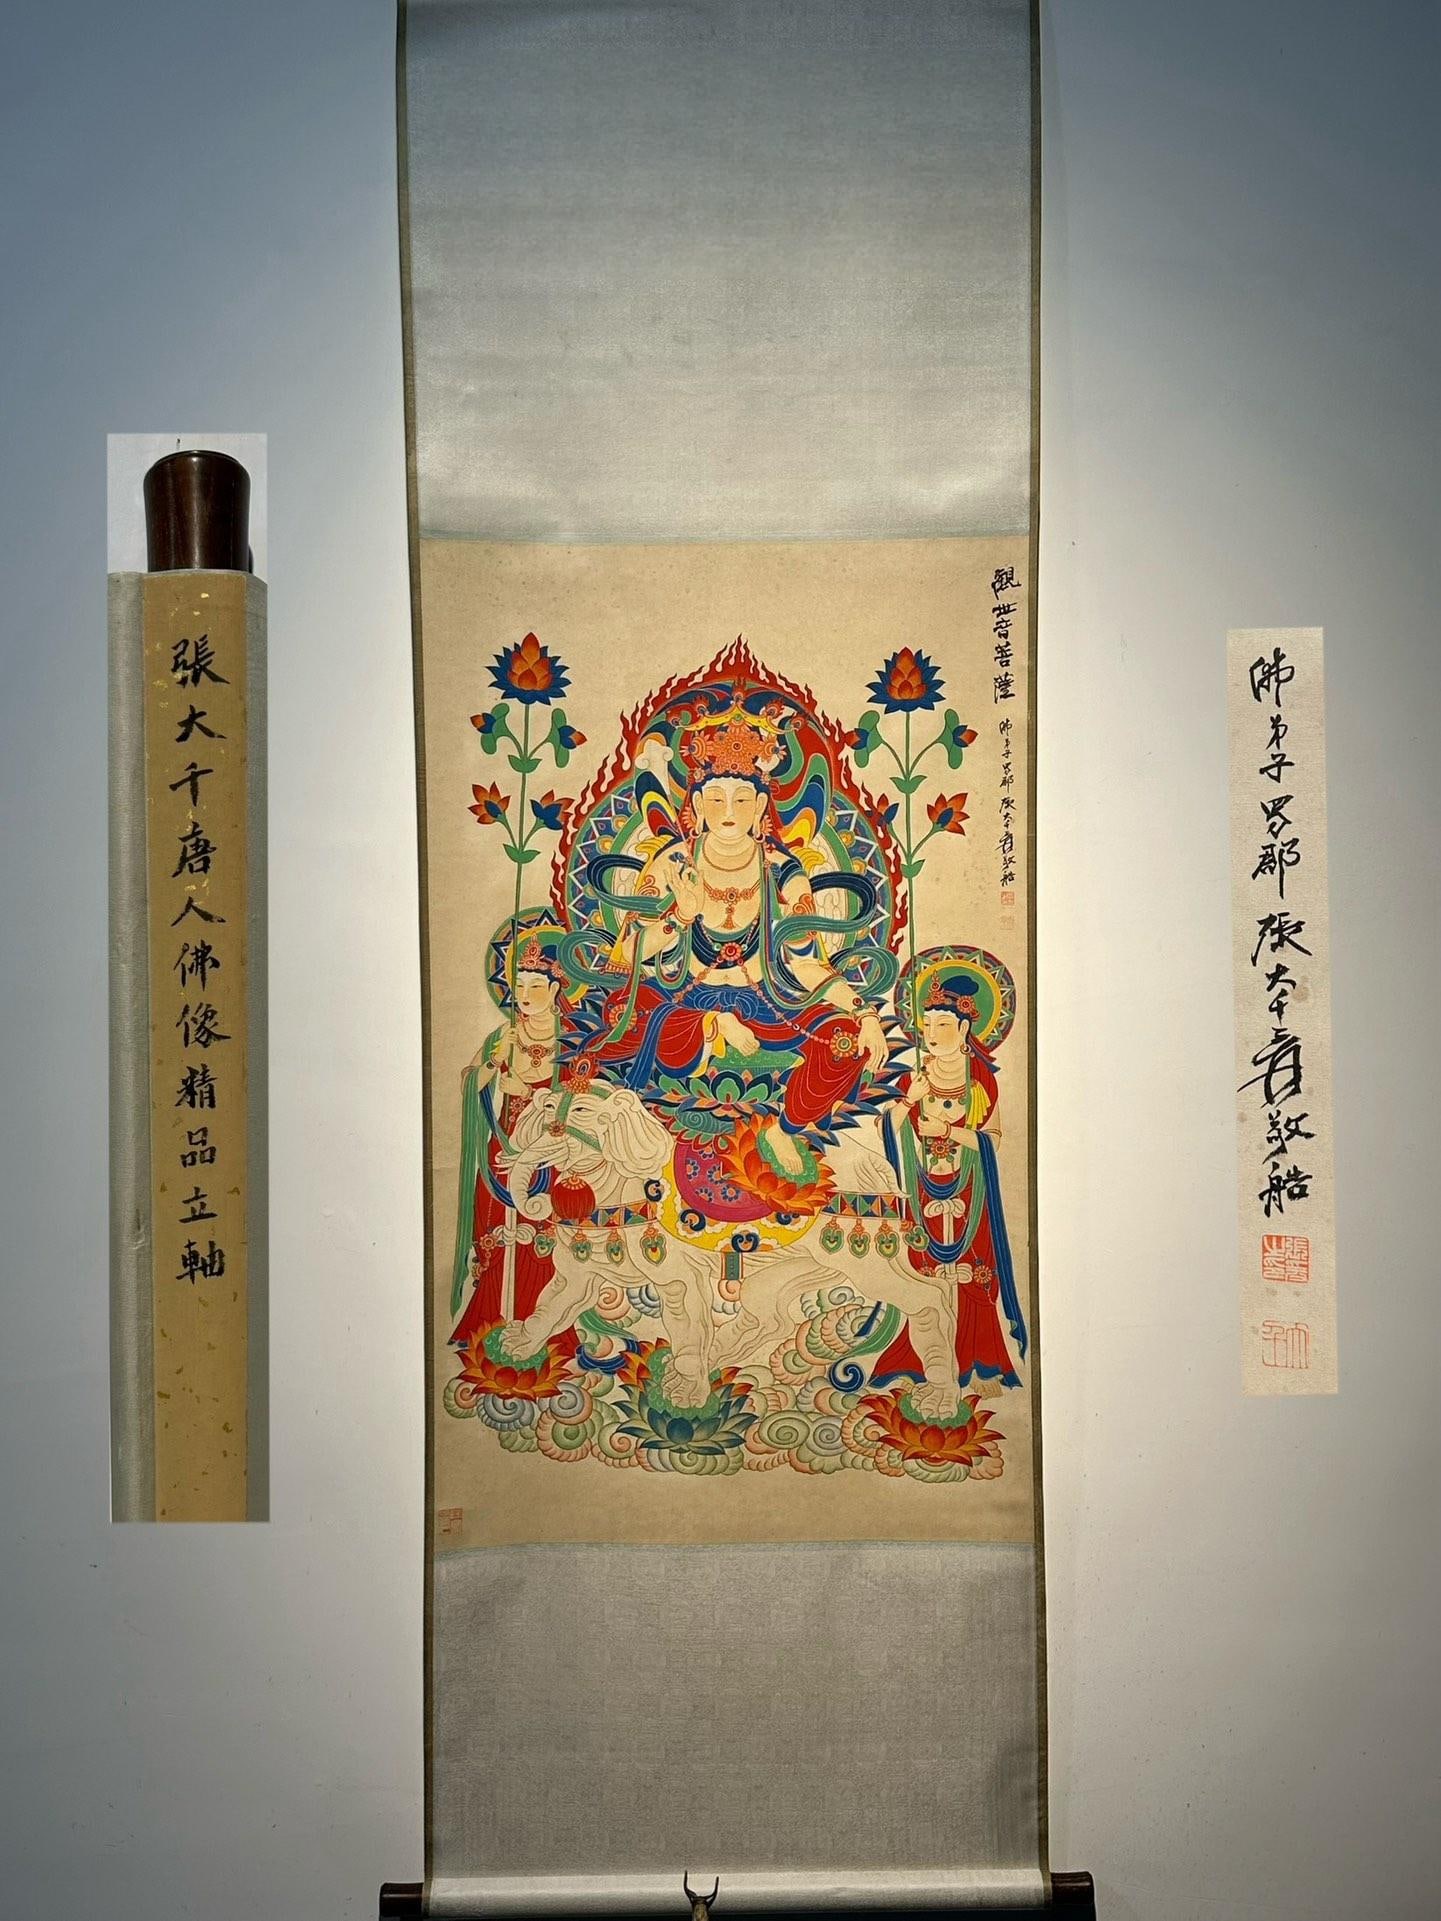 張大千唐人佛像精品立軸
觀世音菩薩
佛弟子蜀郡張大千爰敬造
佛弟子蜀郡張大千爰敬造